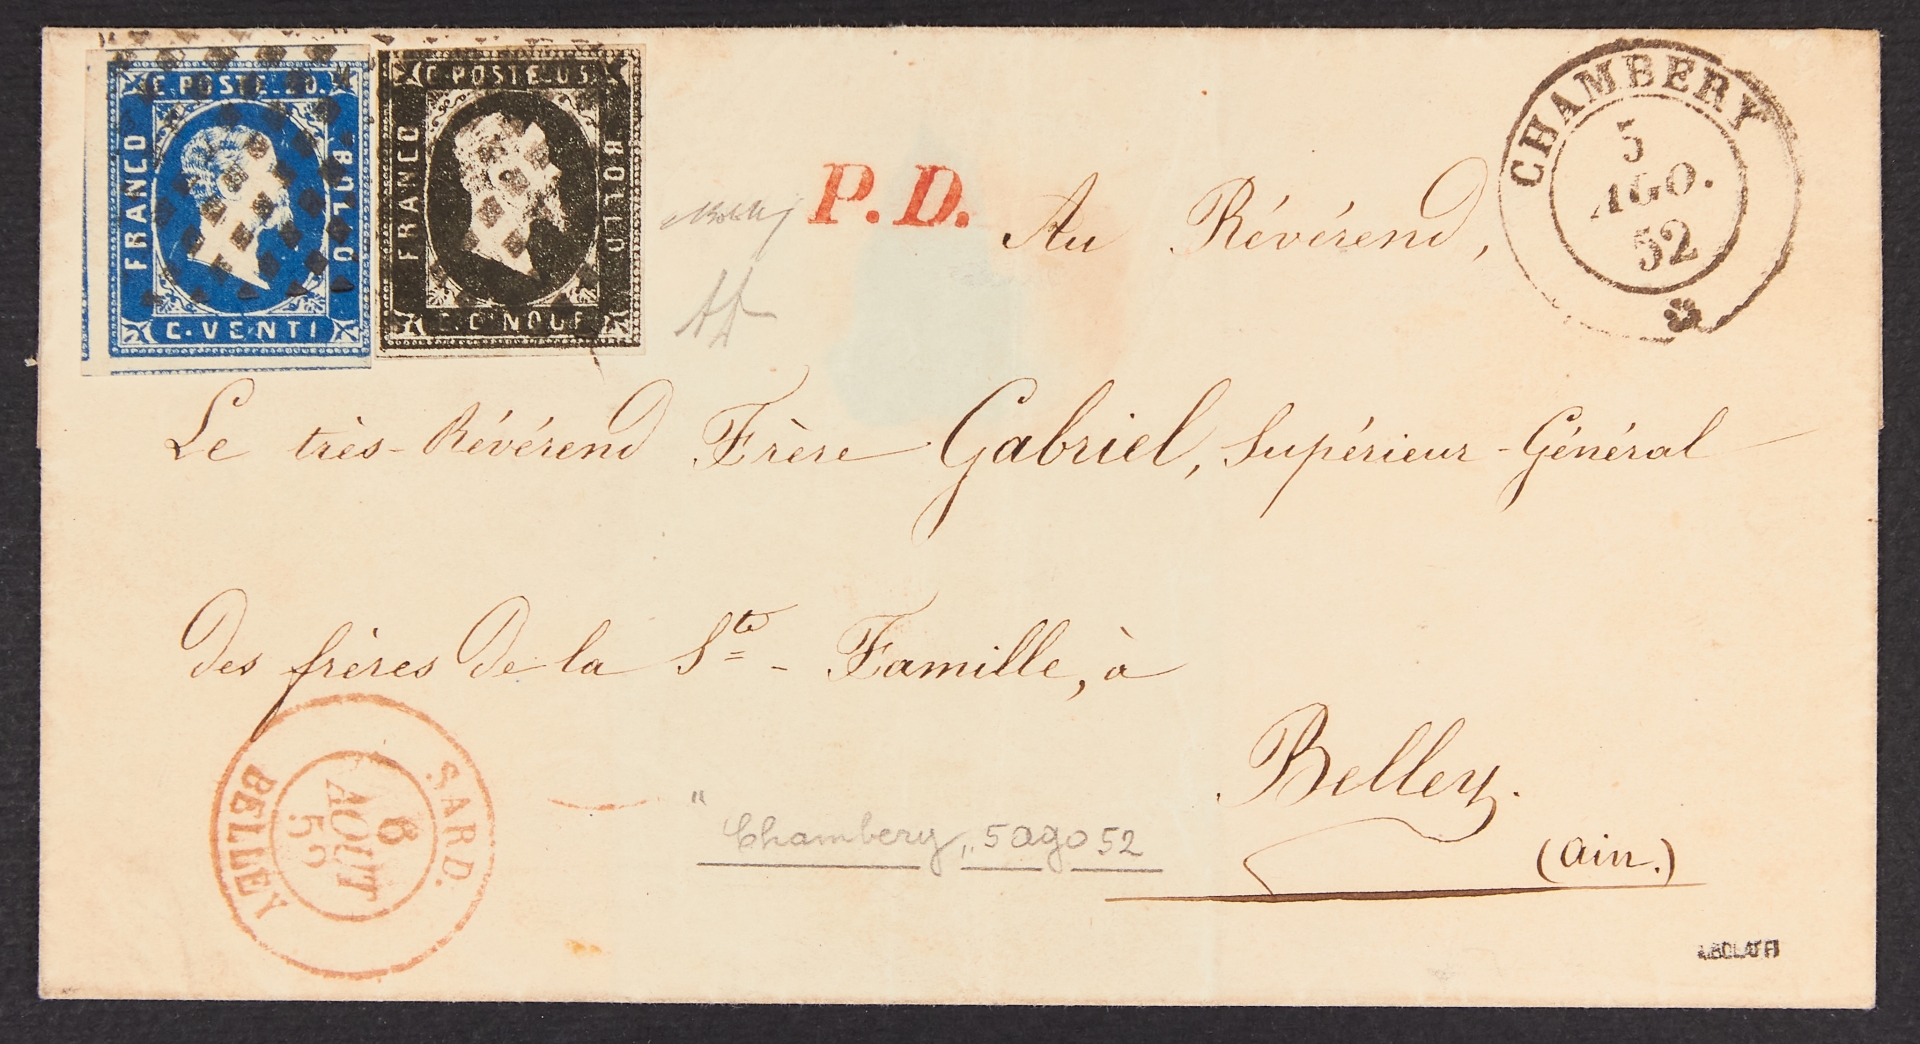 C. POSTE. 20.
FRANCO
BOLLO
C. VENTI
C. POSTE. 05.
FRANCO
BOLLO
C. CINQUE
P. D.
CHAMBERY
5
AGO.
52
Au Révérend,
Le très-Révérend Frère Gabriel, Supérieur-Général
des frères de la Ste-Famille, à
Belley.
(Ain.)
SARD.
6
AOUT
52
BELLEY
"Chambery„ 5 ago 52
A.BOLAFFI